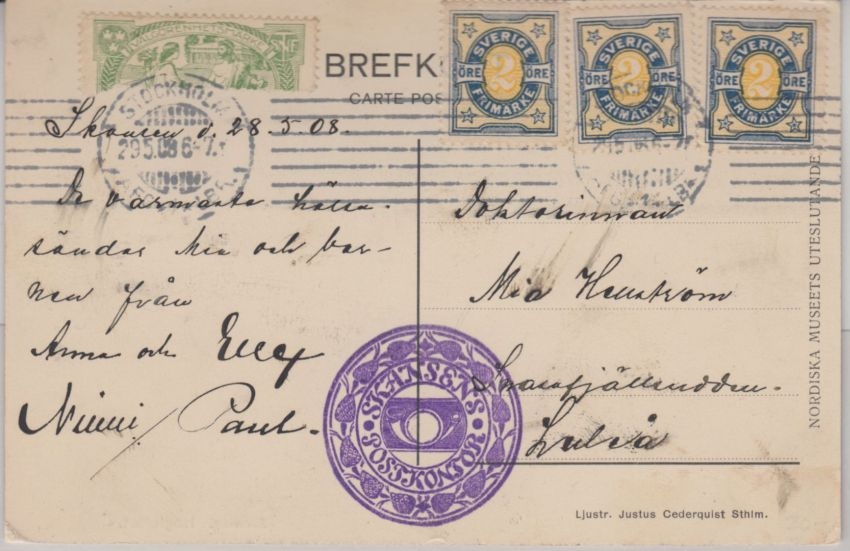 BREFK
CARTE POS
SVERIGE
2
ÖRE ÖRE
FRIMÄRKE
SVERIGE
2
ÖRE ÖRE
FRIMÄRKE
SVERIGE
2
ÖRE ÖRE
FRIMÄRKE
STOCKHOLM
29.5.08 6-7
Skansen d. 28.5.08.
De varmaste häls-
sändas Mia och bar-
nen från
Anna och Elly
Ninni / Paul.
Doktorinnan
Mia Hellström
Luleå
SKANSENS
POSTKONTOR
NORDISKA MUSEETS UTESLUTANDE
Ljustr. Justus Cederquist Sthlm.